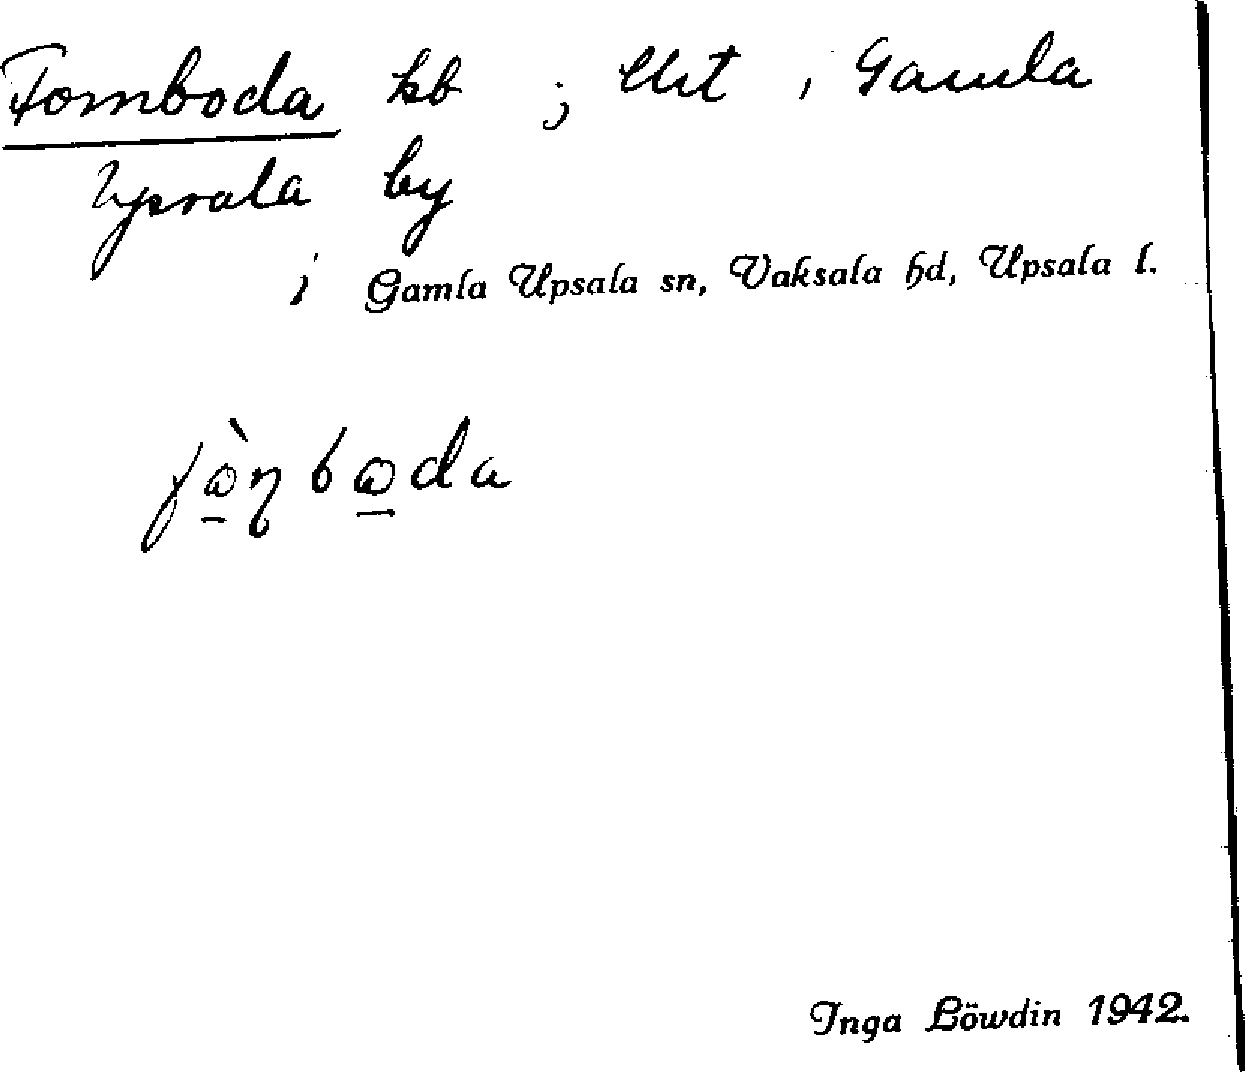 Fornboda kb ; lht i Gamla
Upsala by
i Gamla Upsala sn, Vaksala hd, Upsala l.
Inga Löwdin 1942.